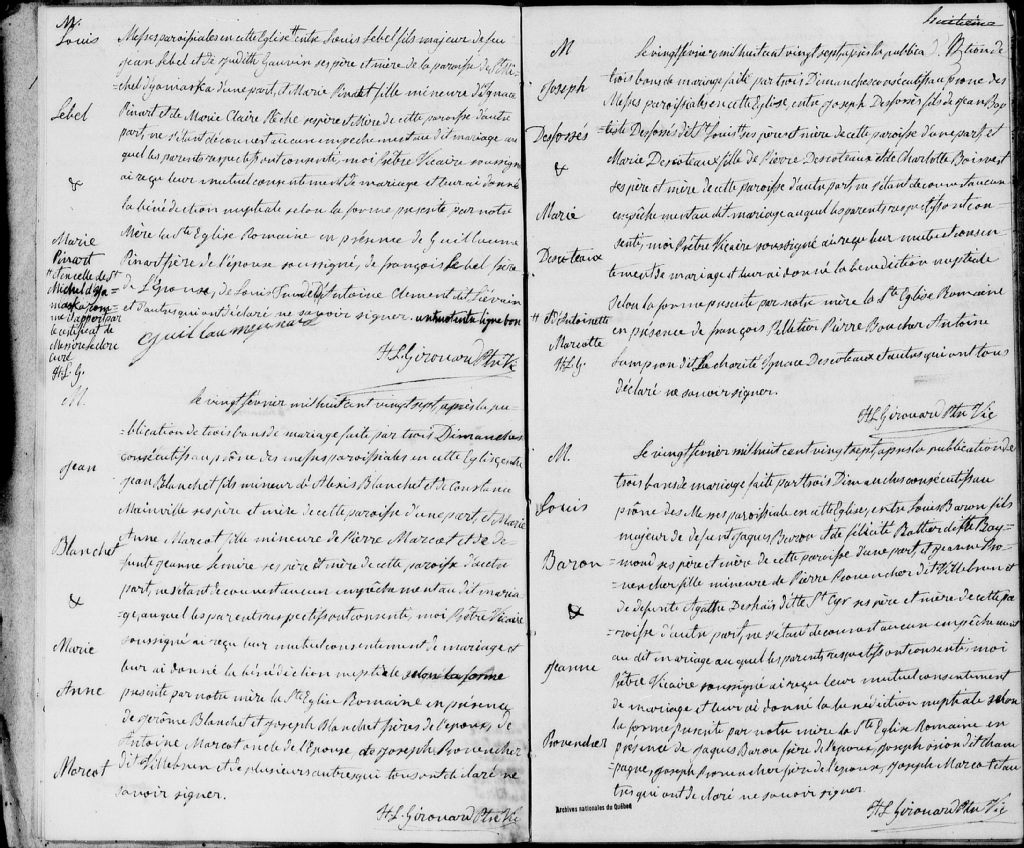 M.
Louis
Lebel
&
Marie
Pinart
Messes paroissiales en cette Eglise # entre Louis Lebel fils majeur de feu
Jean Lebel et de Judith Gauvin ses père et mère de la paroisse de St Mi
chel d'yamaska d'une part, et Marie Pinart fille mineure d'Ignace
Pinart et de Marie Claire Pléché ses père et Mère de cette paroisse d'autre
part, ne s'étant découvert aucun empêchement au dit mariage au
quel les parents respectifs ont consenti, moi Prêtre Vicaire soussigné
ai reçu leur mutuel consentement de mariage et leur ai donné
la bénédiction nuptiale selon la forme présente par notre
Mère la Ste Eglise Romaine en présence de Guillaume
Pinart frère de l'épouse soussigné, de françois Lebel frère
de L'épouse, de Louis Antoine Clement dit Liévrain
et d'autres qui ont déclaré ne savoir signer. un mot en ligne bon
# et en celle de St
Michel d'ya
maska com
me il appert par
le certificat de
Messire leclerc
curé
H.L.G.
guillau me pinart
H L Girouard Ptre Vic
M.
Jean
Blanchet
&
Marie
Anne
Marcot
Le vingt février mil huit cent vingt sept, après la pu
=blication de trois bans de mariage faite par trois Dimanches
consécutifs au prône des messes paroissiales en cette Eglise, entre
Jean Blanchet fils mineur d'Alexis Blanchet et de Constance
Mainville ses père et mère de cette paroisse d'une part, et Marie
Anne Marcot fille mineure de Pierre Marcot et de dé
funte Jeanne Lemire ses père et mère de cette paroisse d'autre
part, ne s'étant découvert aucun empêchement au dit maria
=ge, auquel les parents respectifs ont consenti, moi Prêtre Vicaire
soussigné ai reçu leur mutuel consentement de mariage et
leur ai donné la bénédiction nuptiale selon la forme
présente par notre mère la Ste Eglise Romaine en présence
de Jerôme Blanchet et Joseph Blanchet frères de l'époux, de
Antoine Marcot oncle de l'épouse de Joseph Provencher
dit Villebrun et de plusieurs autres qui tous ont déclaré ne
savoir signer.
H L. Girouard Ptre Vic
huitième
M
Joseph
Desfossés
&
Marie
Descoteaux
Le vingt février mil huit cent vingt sept après la publica tion de
trois bans de mariage faite par trois Dimanches consécutifs au prone des
Messes paroissiales en cette Eglise, entre Joseph Desfossés fils de Jean Bap
=tiste Desfossés dit St Louis # ses père et mère de cette paroisse d'une part, et
Marie Descoteaux fille de Pierre Descoteaux et de Charlotte Boisvert
ses père et mère de cette paroisse d'autre part, ne s'étant découvert aucun
empêchement au dit mariage auquel les parents respectifs ont con
senti, moi Prêtre Vicaire soussigné ai reçu leur mutuel consen
tement de mariage et leur ai donné la bénédiction nuptiale
selon la forme présente par notre mère la Ste Eglise Romaine
en présence de françois Pelletier Pierre Boucher Antoine
Lampron dit Lacharité Ignace Descoteaux et autres qui ont tous
déclaré ne savoir signer.
# & d'Antoinette
Marcotte
H.L.G.
H L Girouard Ptre Vic
M.
Louis
Baron
&
Jeanne
Provencher
Le vingt février mil huit cent vingt sept après la publication de
trois bans de mariage faite par trois Dimanches consécutifs au
prône des Messes paroissiale en cette Eglise, entre Louis Baron fils
majeur de defunt Jaques Baron et de félicité Battor dite Ray
=mond ses père et mère de cette paroisse d'une part, et Jeanne Pro
=vencher fille mineure de Pierre Provencher dit Villebrun et
de defunte Agathe Deshaïs dite St Cyr ses père et mère de cette pa
=roisse d'autre part, ne s'étant découvert aucun empêchement
au dit mariage auquel les parents respectifs ont consenti, moi
Prêtre Vicaire soussigné ai reçu leur mutuel consentement
de mariage et leur ai donné la bénédiction nuptiale selon
la forme présente par notre mère la Ste Eglise Romaine en
présence de Jaques Baron frère de l'époux, Joseph Orion dit Cham
pagne, Joseph Provencher frère de l'épouse, Joseph Marcot et au
tres qui ont déclaré ne savoir signer.
H L Girouard Ptre Vic
Archives nationales du Québec